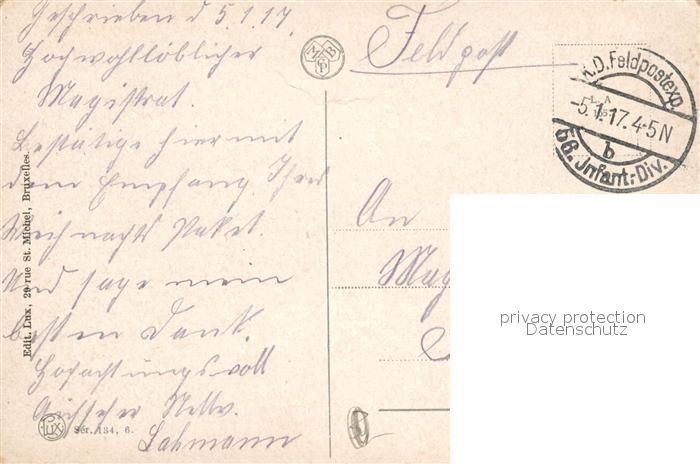 Geschrieben d 5.1.17
Hochwohllöblicher
Magistrat.
Bestätige hiermit
dem Empfang Ihres
Weihnachts Paket.
Und sage mein
besten Dank.
Hochachtungsvoll
Lahmann
Edit. Lux, 29 rue St. Michel, Bruxelles.
LUX
Sér. 134, 6.
Feldpost
K.D.Feldpostexp.
-5.1.17.4-5N
b
56. Infant.-Div.
An
Mag
privacy protection
Datenschutz